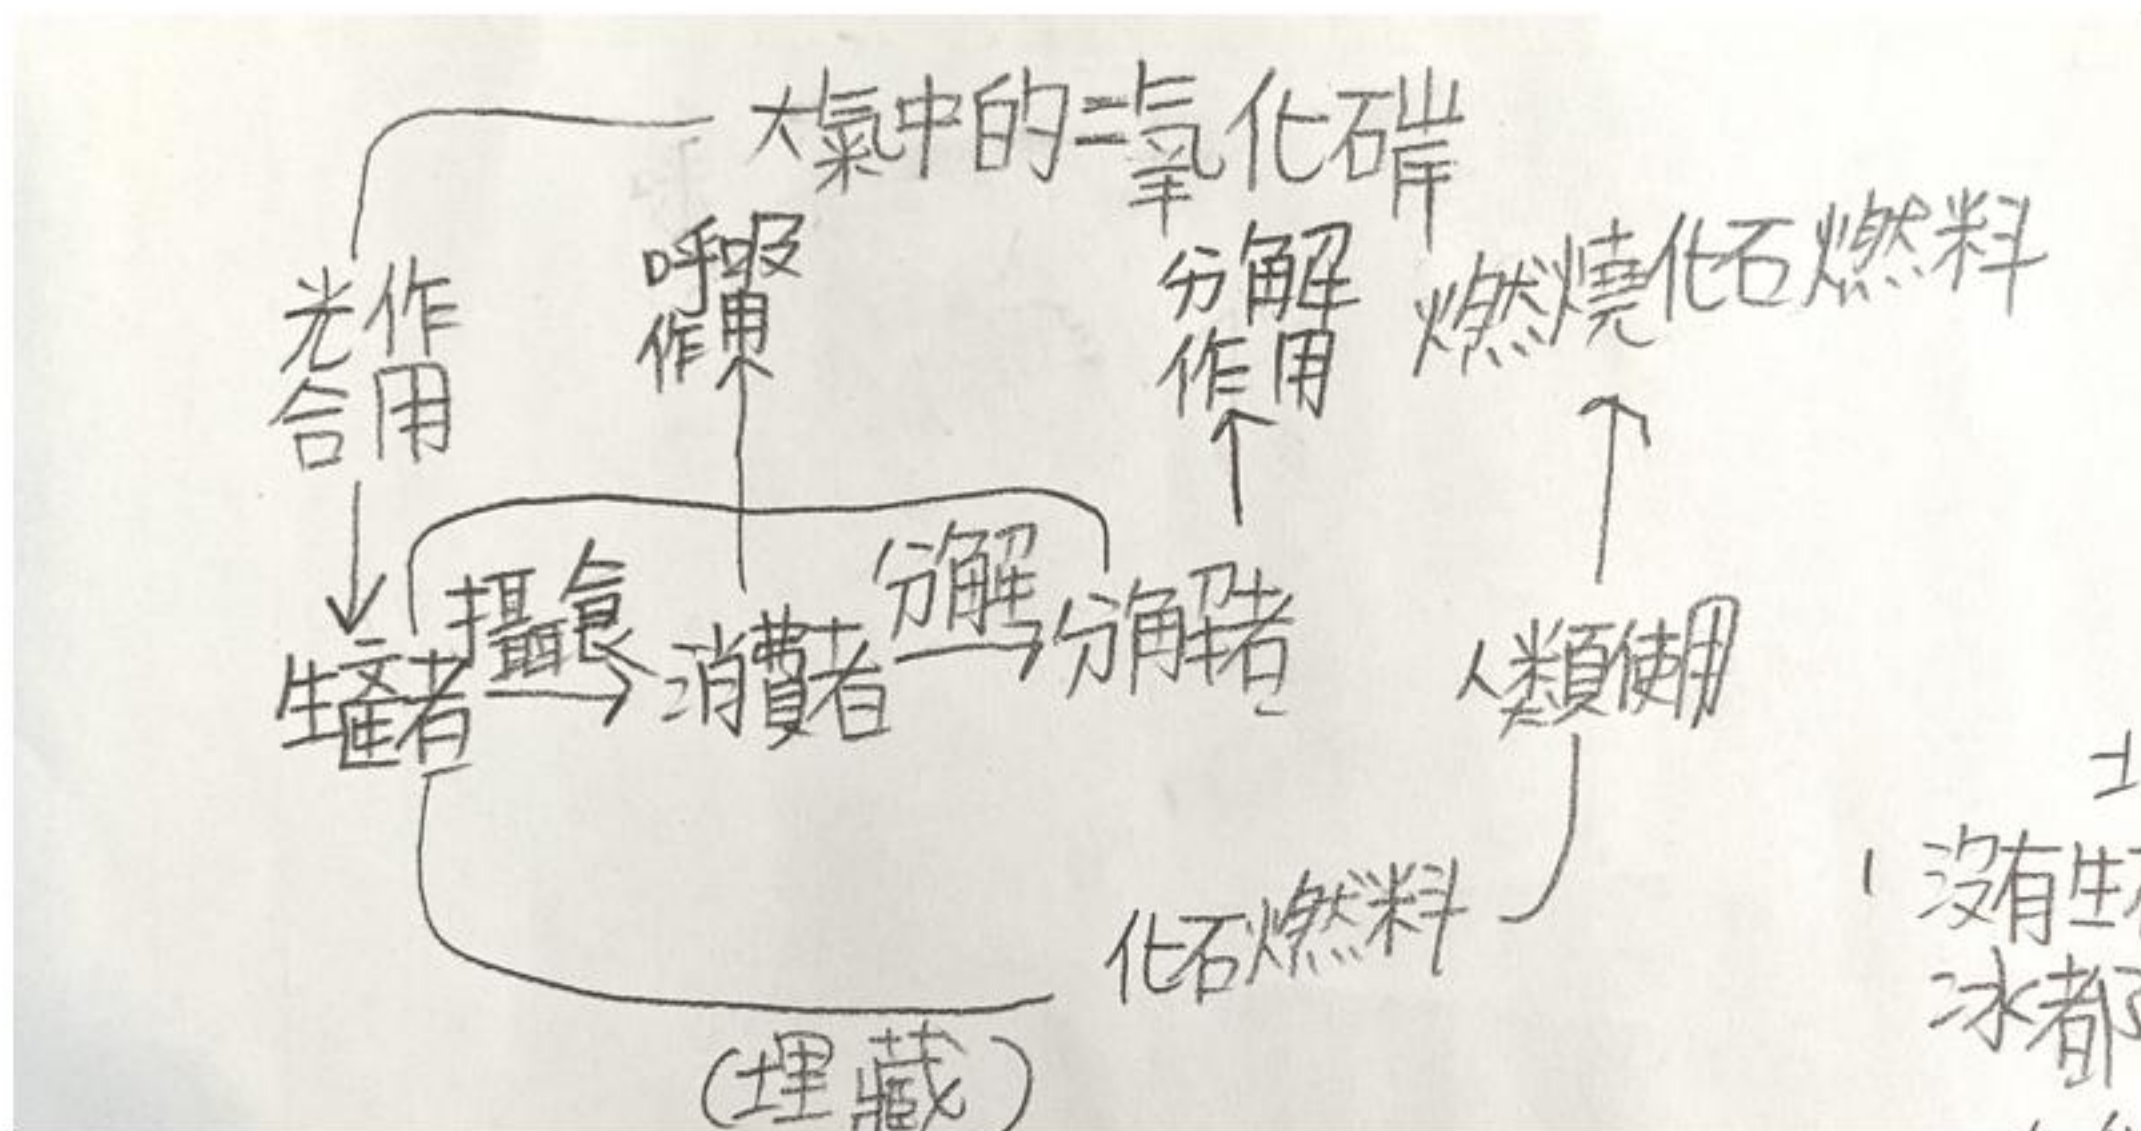 大氣中的二氧化碳
光合作用
呼吸作用
分解作用
燃燒化石燃料
生產者
攝食
消費者
分解
分解者
人類使用
化石燃料
(埋藏)
沒有生
冰都